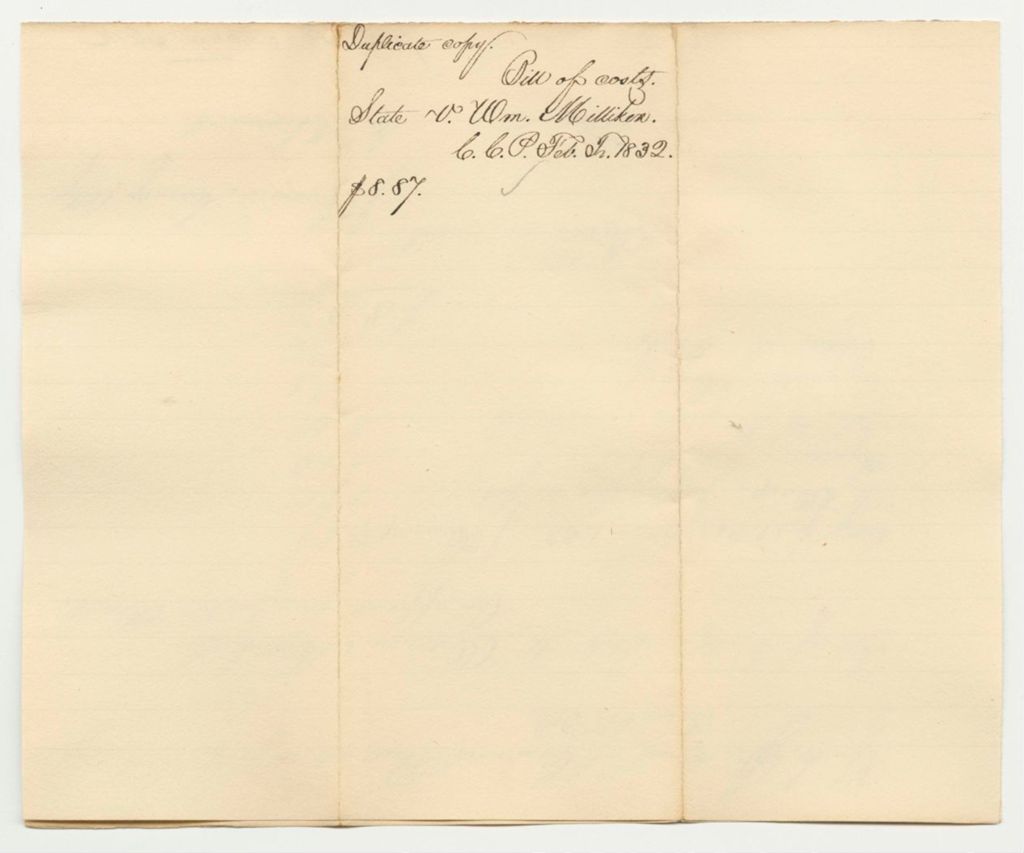 Duplicate copy.
Bill of costs.
State v. Wm. Milliken.
C. C. P. Feb. Tr. 1832.
$8.87.